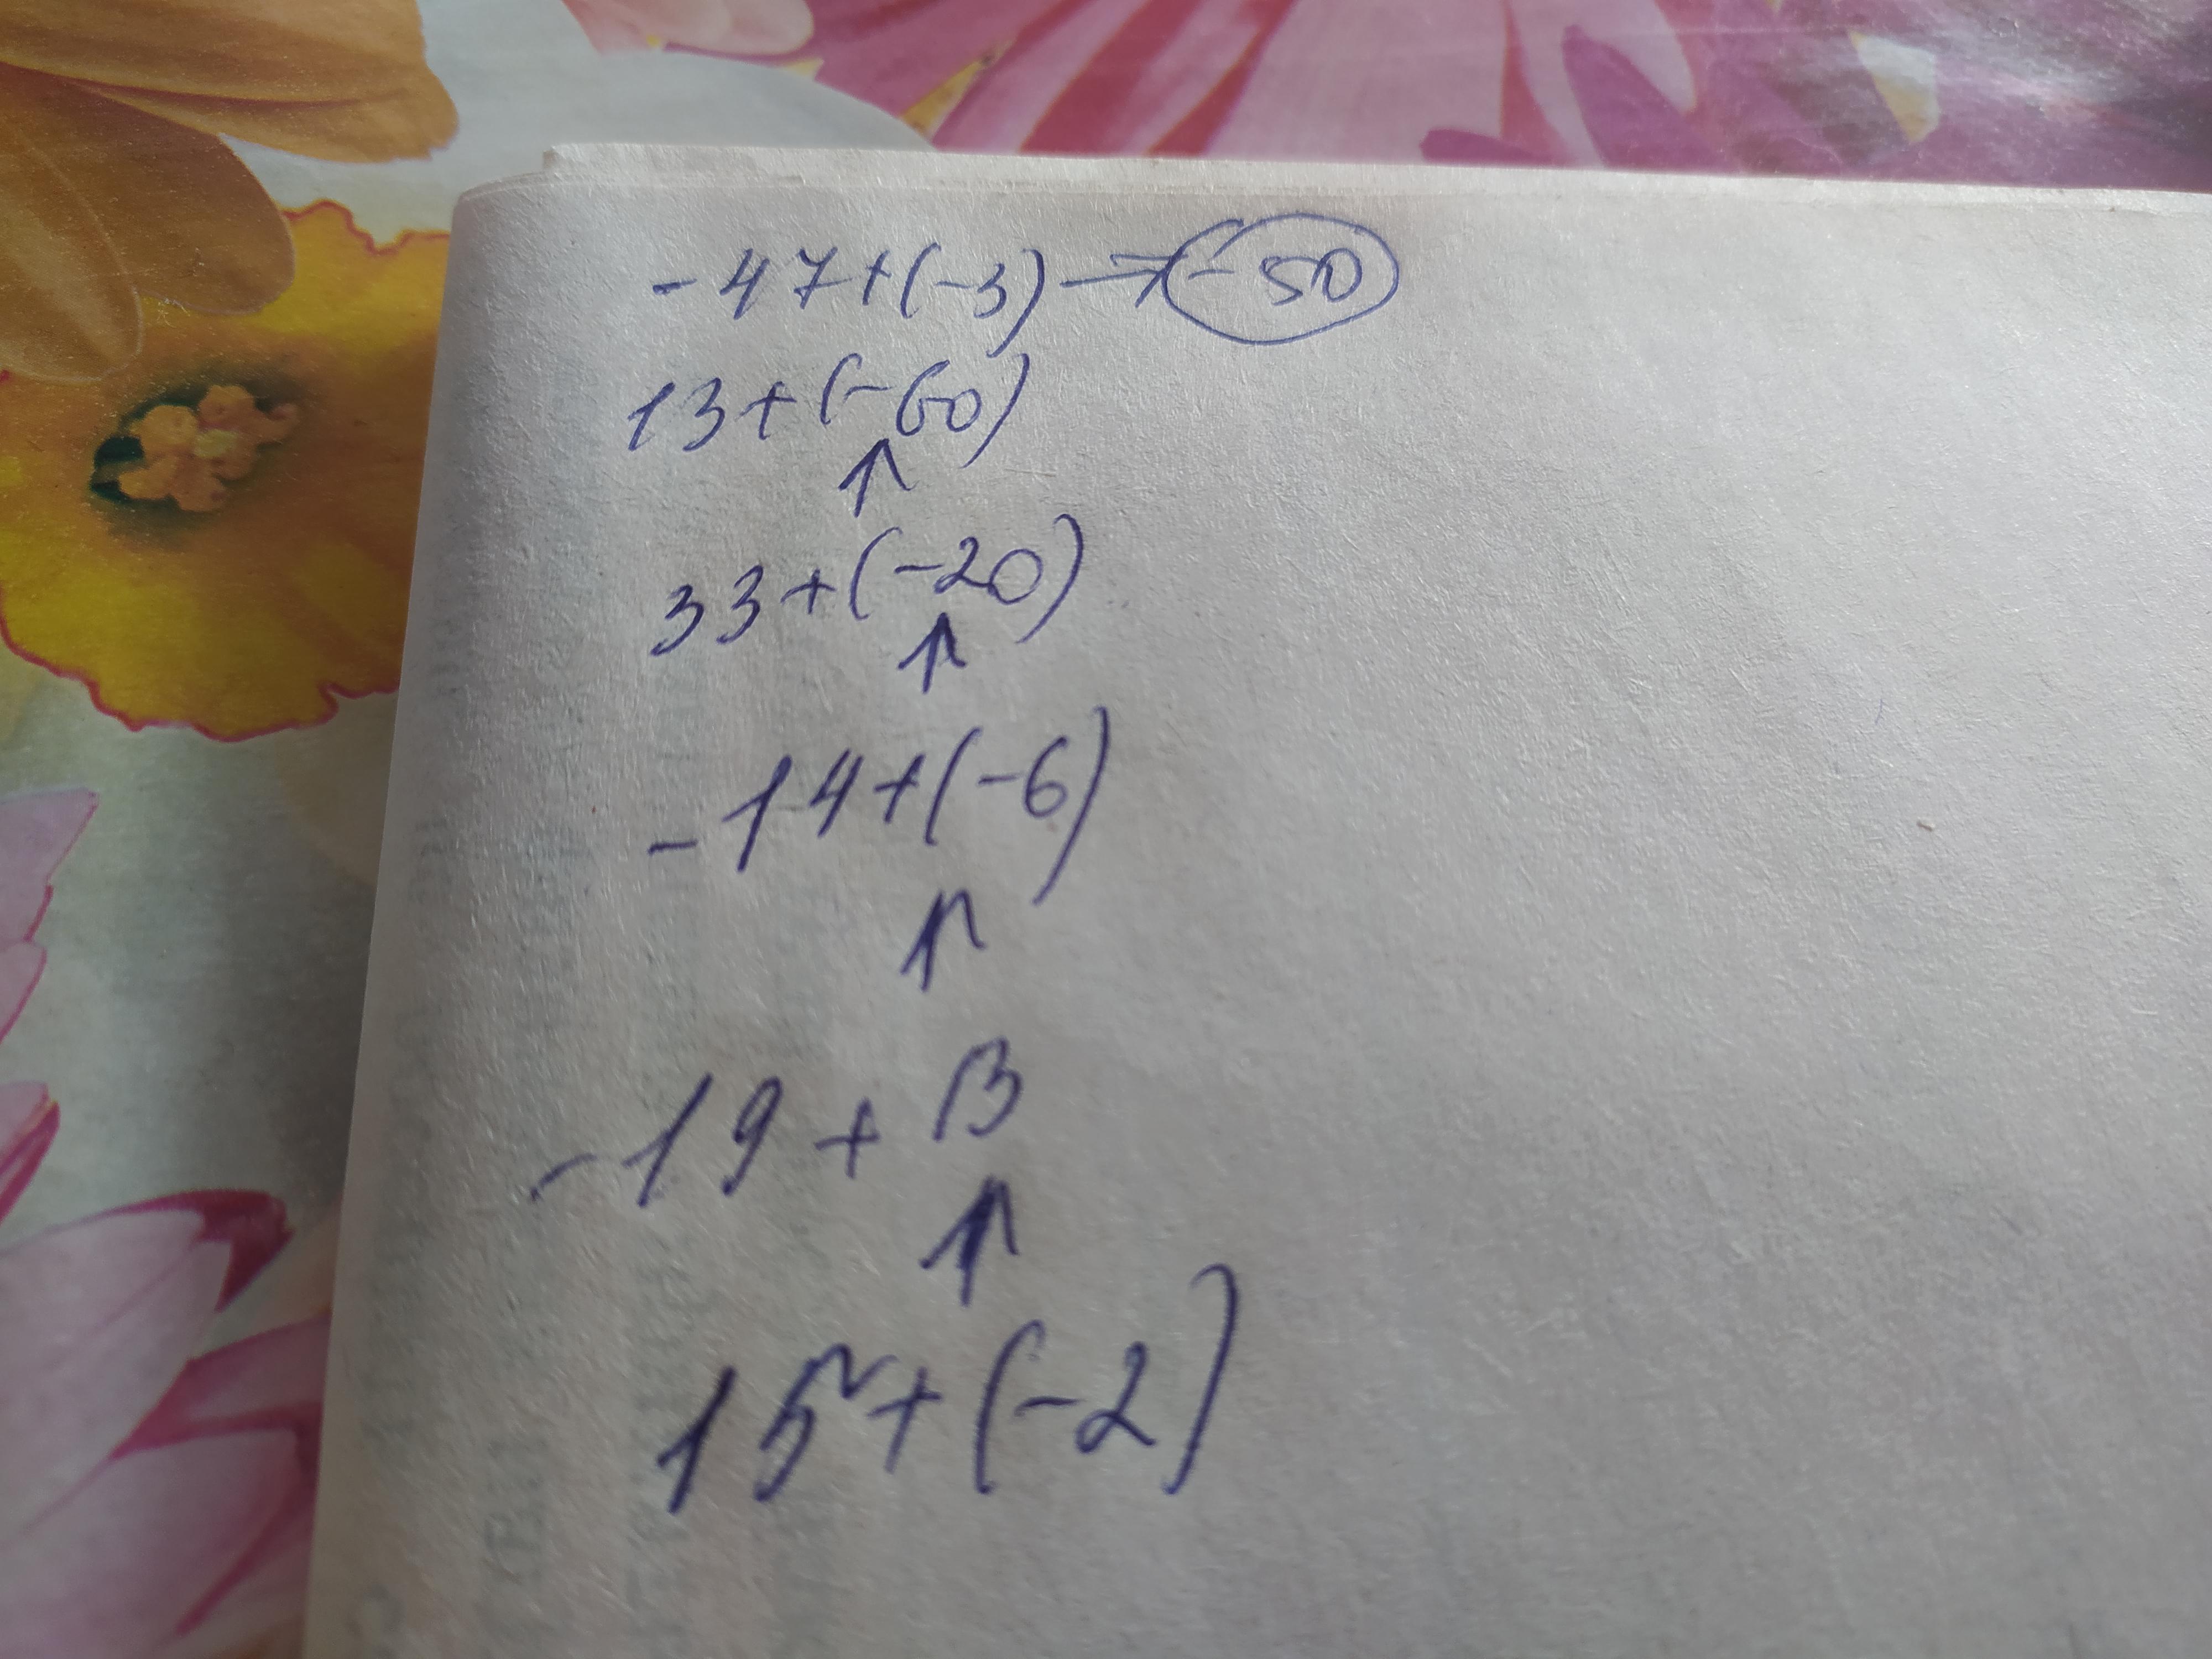 -47+(-3) → -50
13+(-60)
↑
33+(-20)
↑
-14+(-6)
↑
-19+13
↑
15+(-2)